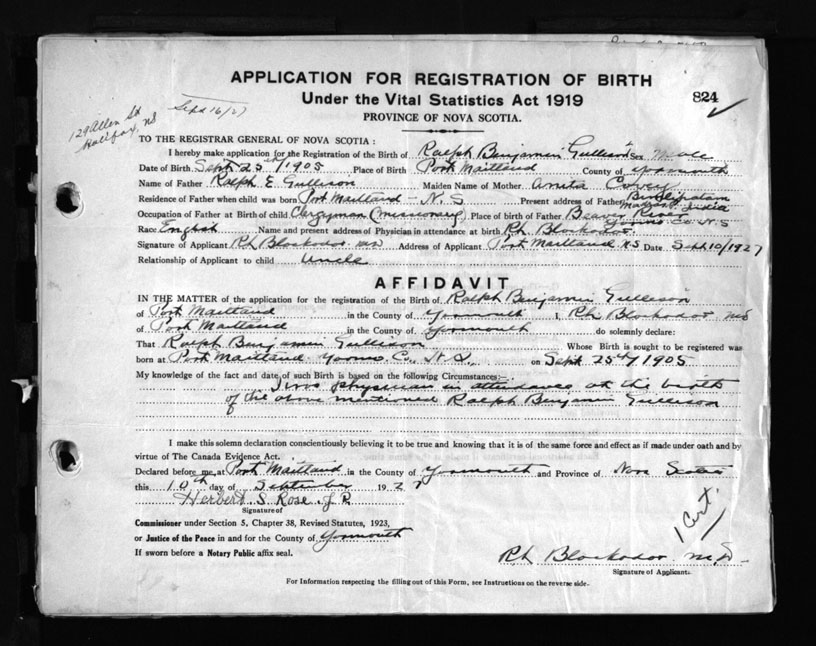 APPLICATION FOR REGISTRATION OF BIRTH
Under the Vital Statistics Act 1919
824
PROVINCE OF NOVA SCOTIA.
129 Allen St
Halifax, NS
Sept 16/27
TO THE REGISTRAR GENERAL OF NOVA SCOTIA:
I hereby make application for the Registration of the Birth of Ralph Benjamin Gullison Sex Male
Date of Birth Sept 25th/1905 Place of Birth Port Maitland County of Yarmouth
Name of Father Ralph E. Gullison Maiden Name of Mother Anita Corey
Residence of Father when child was born Port Maitland - N.S Present address of Father India
Occupation of Father at Birth of child Clergyman (Missionary) Place of birth of Father Beaver River Co. N.S
Race English Name and present address of Physician in attendance at birth
Signature of Applicant MD Address of Applicant Port Maitland NS Date Sept 10/1927
Relationship of Applicant to child Uncle
AFFIDAVIT
IN THE MATTER of the application for the registration of the Birth of Ralph Benjamin Gullison
of Port Maitland in the County of Yarmouth I, MD
of Port Maitland in the County of Yarmouth do solemnly declare:
That Ralph Benjamin Gullison Whose Birth is sought to be registered was
born at Port Maitland Co., N.S., on Sept 25th/1905
My knowledge of the fact and date of such Birth is based on the following Circumstances:—
I was physician in attendance at the birth
of the above mentioned Ralph Benjamin Gullison
I make this solemn declaration conscientiously believing it to be true and knowing that it is of the same force and effect as if made under oath and by
virtue of The Canada Evidence Act.
Declared before me, at Port Maitland in the County of Yarmouth and Province of Nova Scotia
this 10th day of September 1927
Herbert S. Rose J.P.
Signature of
Commissioner under Section 5, Chapter 38, Revised Statutes, 1923,
or Justice of the Peace in and for the County of Yarmouth
If sworn before a Notary Public affix seal.
1 Cert.
MD
Signature of Applicant.
For Information respecting the filling out of this Form, see Instructions on the reverse side.